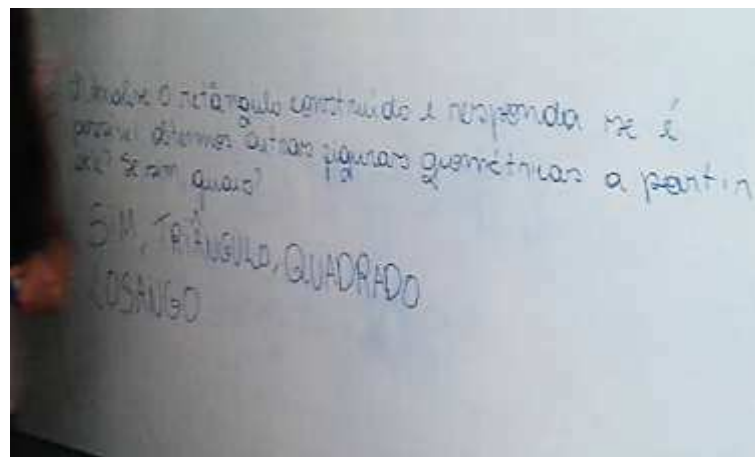 Analise o retângulo construído e responda se é
possível obtermos outras figuras geométricas a partir
dele? Se sim quais?
SIM, TRIÂNGULO, QUADRADO
LOSANGO